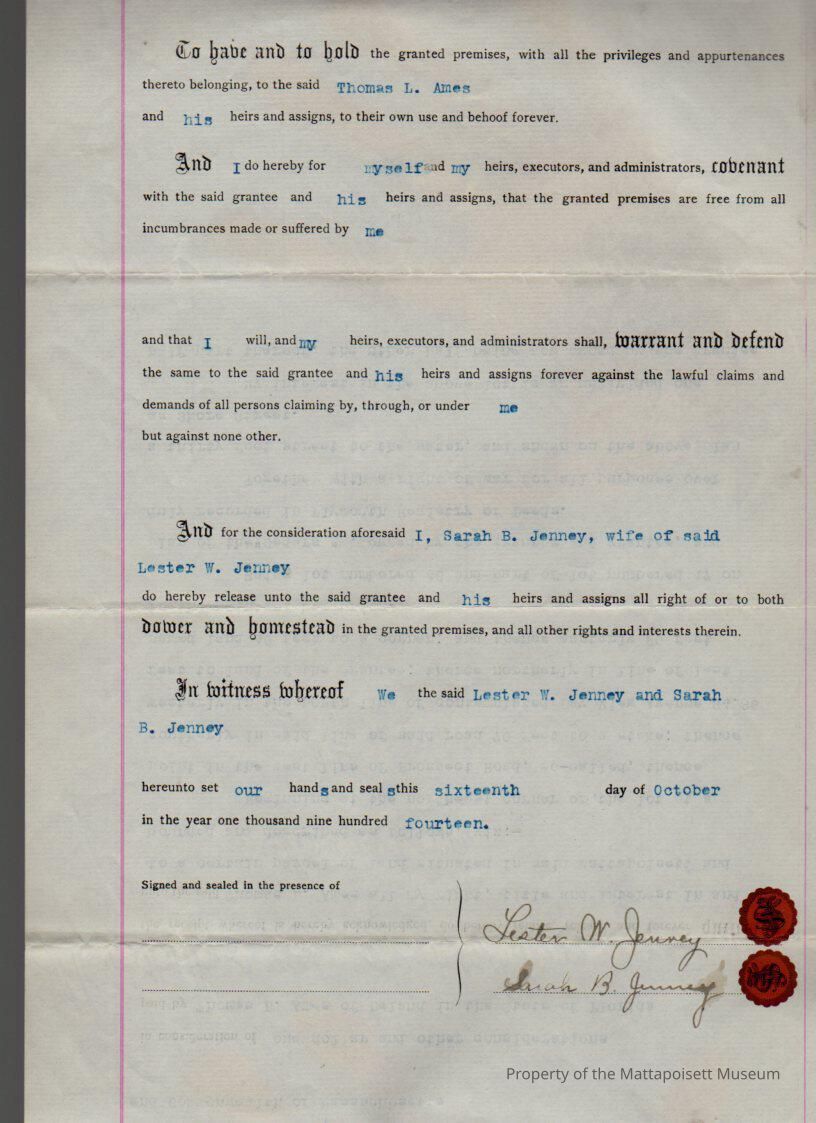 To have and to hold the granted premises, with all the privileges and appurtenances
thereto belonging, to the said Thomas L. Ames
and his heirs and assigns, to their own use and behoof forever.
And I do hereby for myself and my heirs, executors, and administrators, covenant
with the said grantee and his heirs and assigns, that the granted premises are free from all
incumbrances made or suffered by me
and that I will, and my heirs, executors, and administrators shall, warrant and defend
the same to the said grantee and his heirs and assigns forever against the lawful claims and
demands of all persons claiming by, through, or under me
but against none other.
And for the consideration aforesaid I, Sarah B. Jenney, wife of said
Lester W. Jenney
do hereby release unto the said grantee and his heirs and assigns all right of or to both
dower and homestead in the granted premises, and all other rights and interests therein.
In witness whereof We the said Lester W. Jenney and Sarah
B. Jenney
hereunto set our hands and seals this sixteenth day of October
in the year one thousand nine hundred fourteen.
Signed and sealed in the presence of
Lester W. Jenney
Sarah B. Jenney
Property of the Mattapoisett Museum